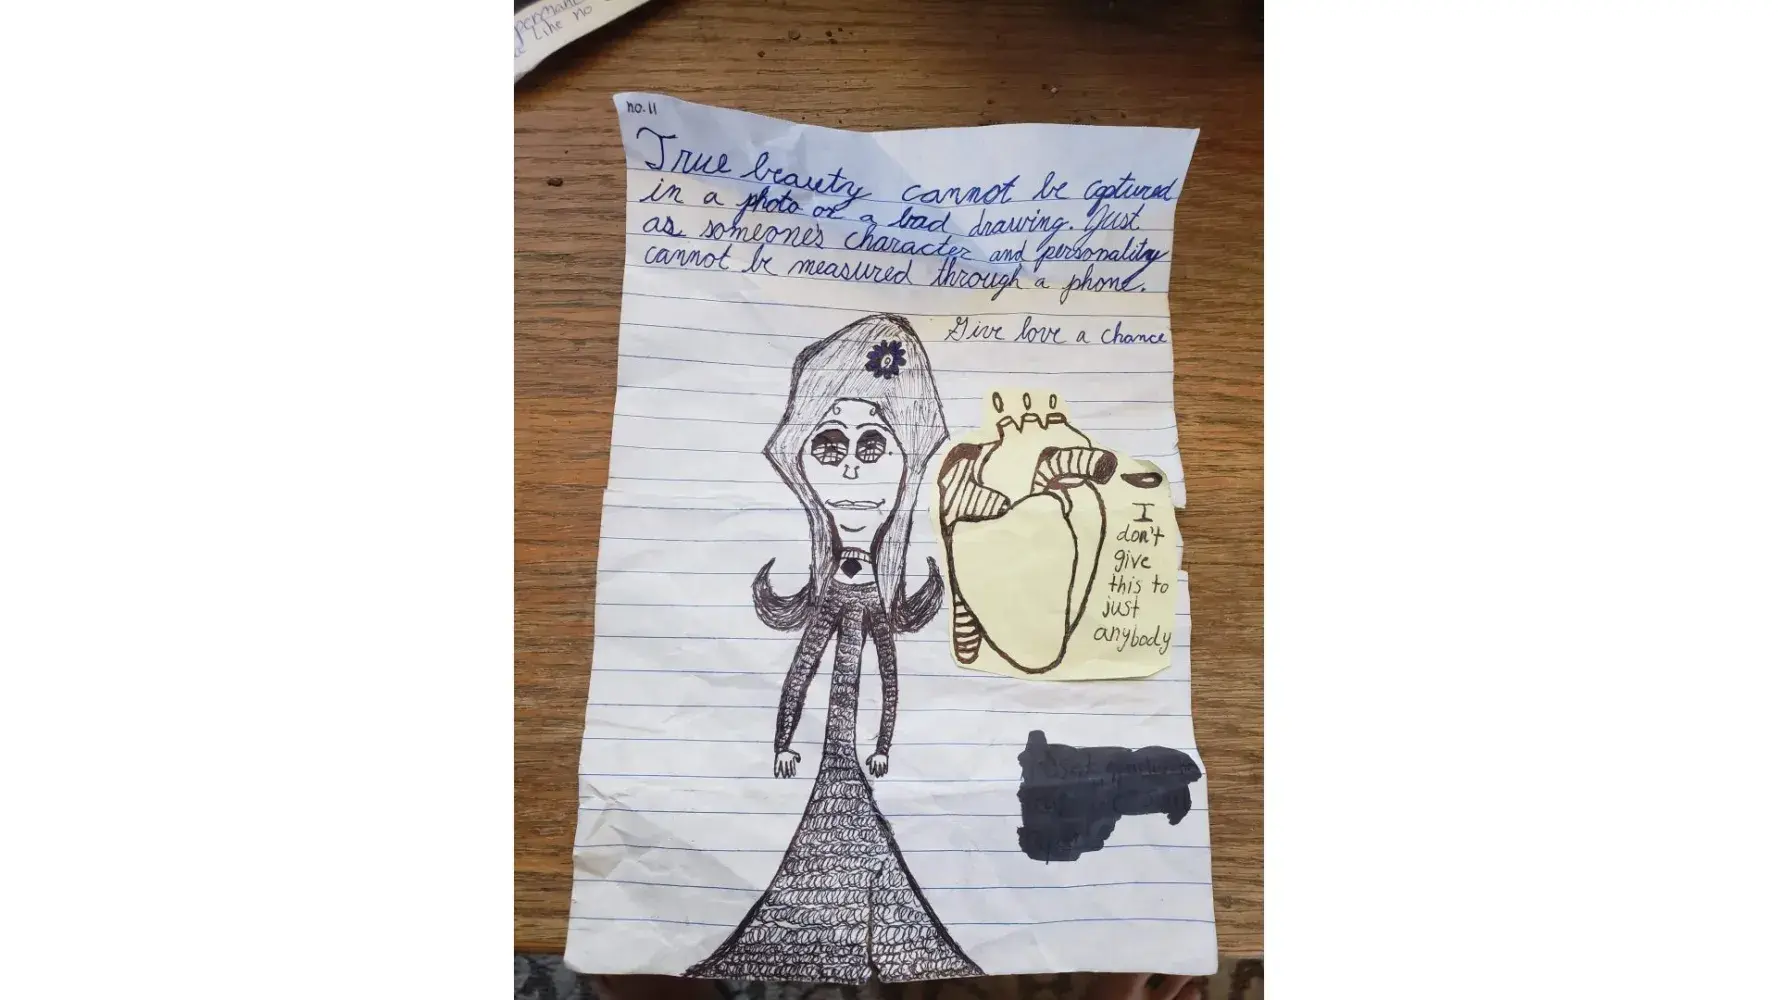 permane
Like no
no. 11
True beauty cannot be captured
in a photo or a bad drawing. Just
as someone's character and personality
cannot be measured through a phone.
Give love a chance
I
don't
give
this to
just
anybody